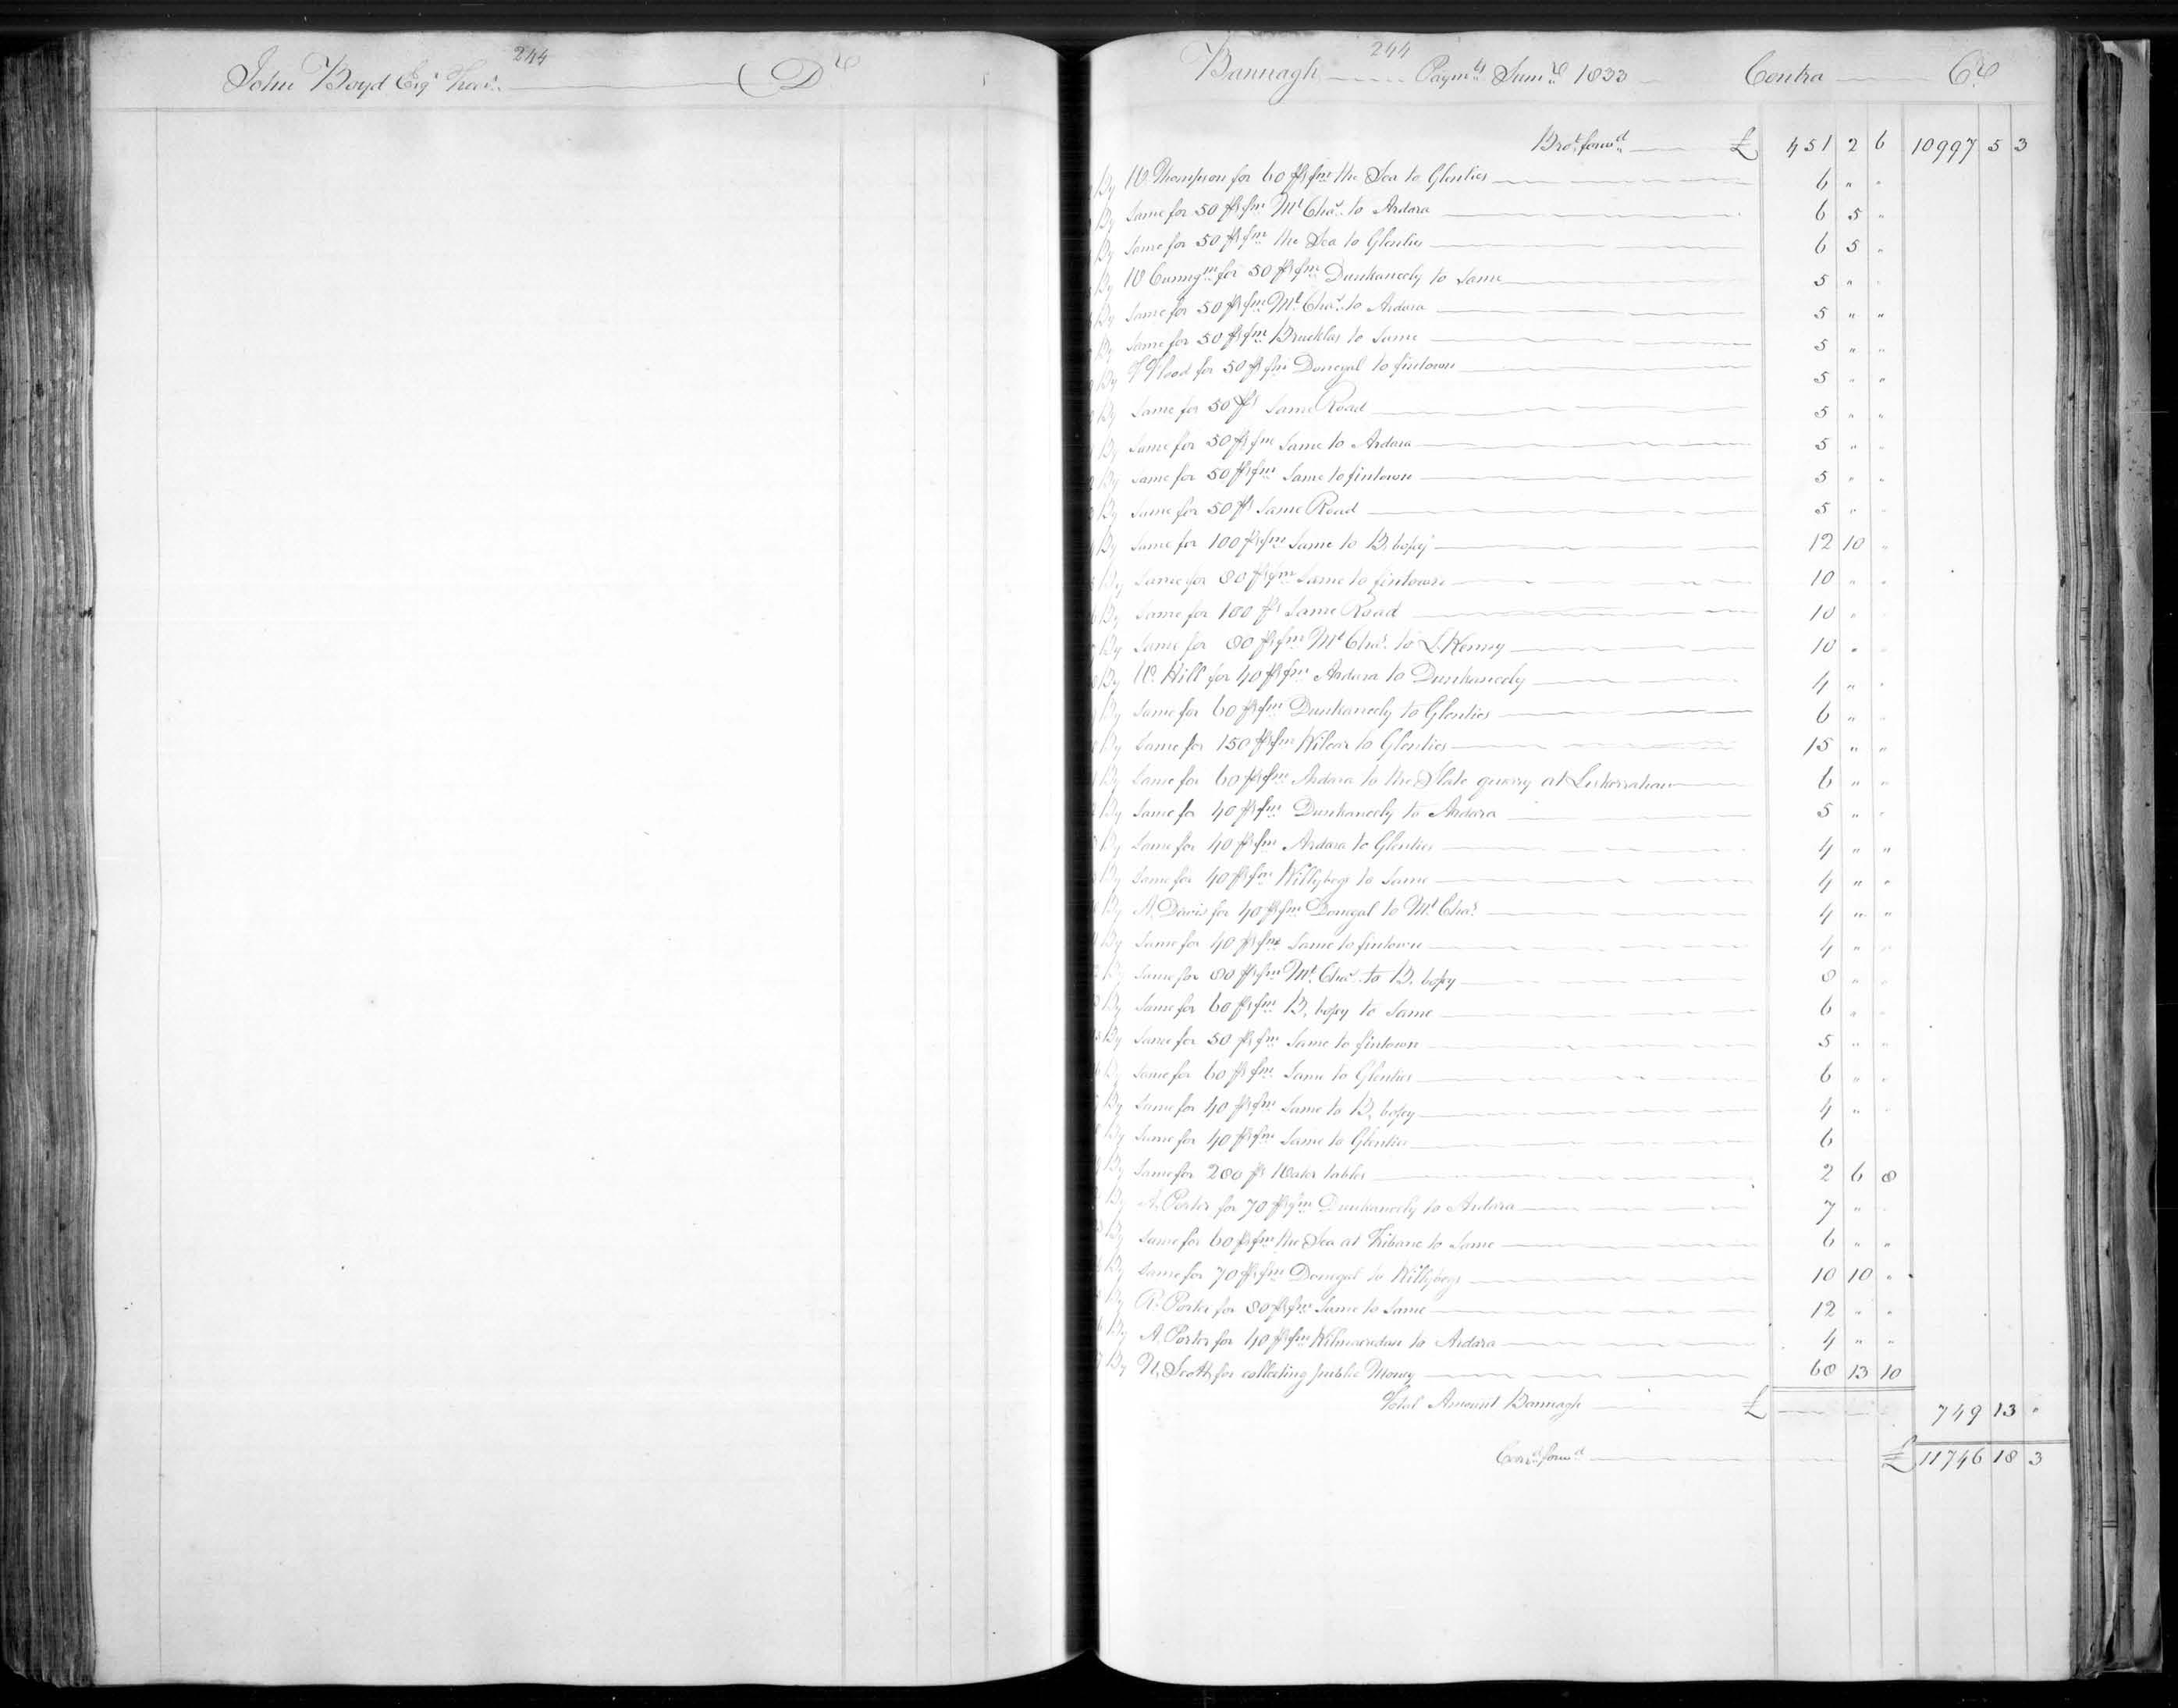 244
John Boyd Esqr Treasr Dr
244
Bannagh Paymts Sumr 1833 Contra Cr
Brot forwd £ 451 2 6 10997 5 3
By W. Thompson for 60 ps fm the Sea to Glenties 6 " "
By Same for 50 ps fm Mt Chas to Ardara 6 5 "
By Same for 50 ps fm the Sea to Glenties 6 5 "
By W Cunngm for 50 ps fm Dunkaneely to Same 5 " "
By Same for 50 ps fm Mt Chas to Ardara 5 " "
By Same for 50 ps fm Brucklas to Same 5 " "
By Flood for 50 ps fm Donegal to fintown 5 " "
By Same for 50 ps Same Road 5 " "
By Same for 50 ps fm Same to Ardara 5 " "
By Same for 50 ps fm Same to fintown 5 " "
By Same for 50 ps Same Road 5 " "
By Same for 100 ps fm Same to B. bofey 12 10 "
By Same for 80 ps fm Same to fintown 10 " "
By Same for 100 ps Same Road 10 " "
By Same for 80 ps fm Mt Chas to L. Kenny 10 " "
By W. Hill for 40 ps fm Ardara to Dunkaneely 4 " "
By Same for 60 ps fm Dunkaneely to Glenties 6 " "
By Same for 150 ps fm Kilcar to Glenties 15 " "
By Same for 60 ps fm Ardara to the Slate quarry at 6 " "
By Same for 40 ps fm Dunkaneely to Ardara 5 " "
By Same for 40 ps fm Ardara to Glenties 4 " "
By Same for 40 ps fm Killybegs to Same 4 " "
By A. Davis for 40 ps fm Donegal to Mt Chas 4 " "
By Same for 40 ps fm Same to fintown 4 " "
By Same for 80 ps fm Mt Chas to B. bofey 8 " "
By Same for 60 ps fm B. bofey to Same 6 " "
By Same for 50 ps fm Same to fintown 5 " "
By Same for 60 ps fm Same to Glenties 6 " "
By Same for 40 ps fm Same to B. bofey 4 " "
By Same for 40 ps fm Same to Glenties 6
By Same for 280 ps Water tables 2 6 8
By A. Porter for 70 ps fm Dunkaneely to Ardara 7 "
By Same for 60 ps fm the Sea at Fibane to Same 6 " "
By Same for 70 ps fm Donegal to Killybegs 10 10 "
By R. Porter for 80 ps fm Same to Same 12 " "
By A. Porter for 40 ps fm to Ardara 4 " "
By N. Scott for collecting public Money 68 13 10
Total Amount Bannagh £ 749 13 "
Carrd forwd £ 11746 18 3